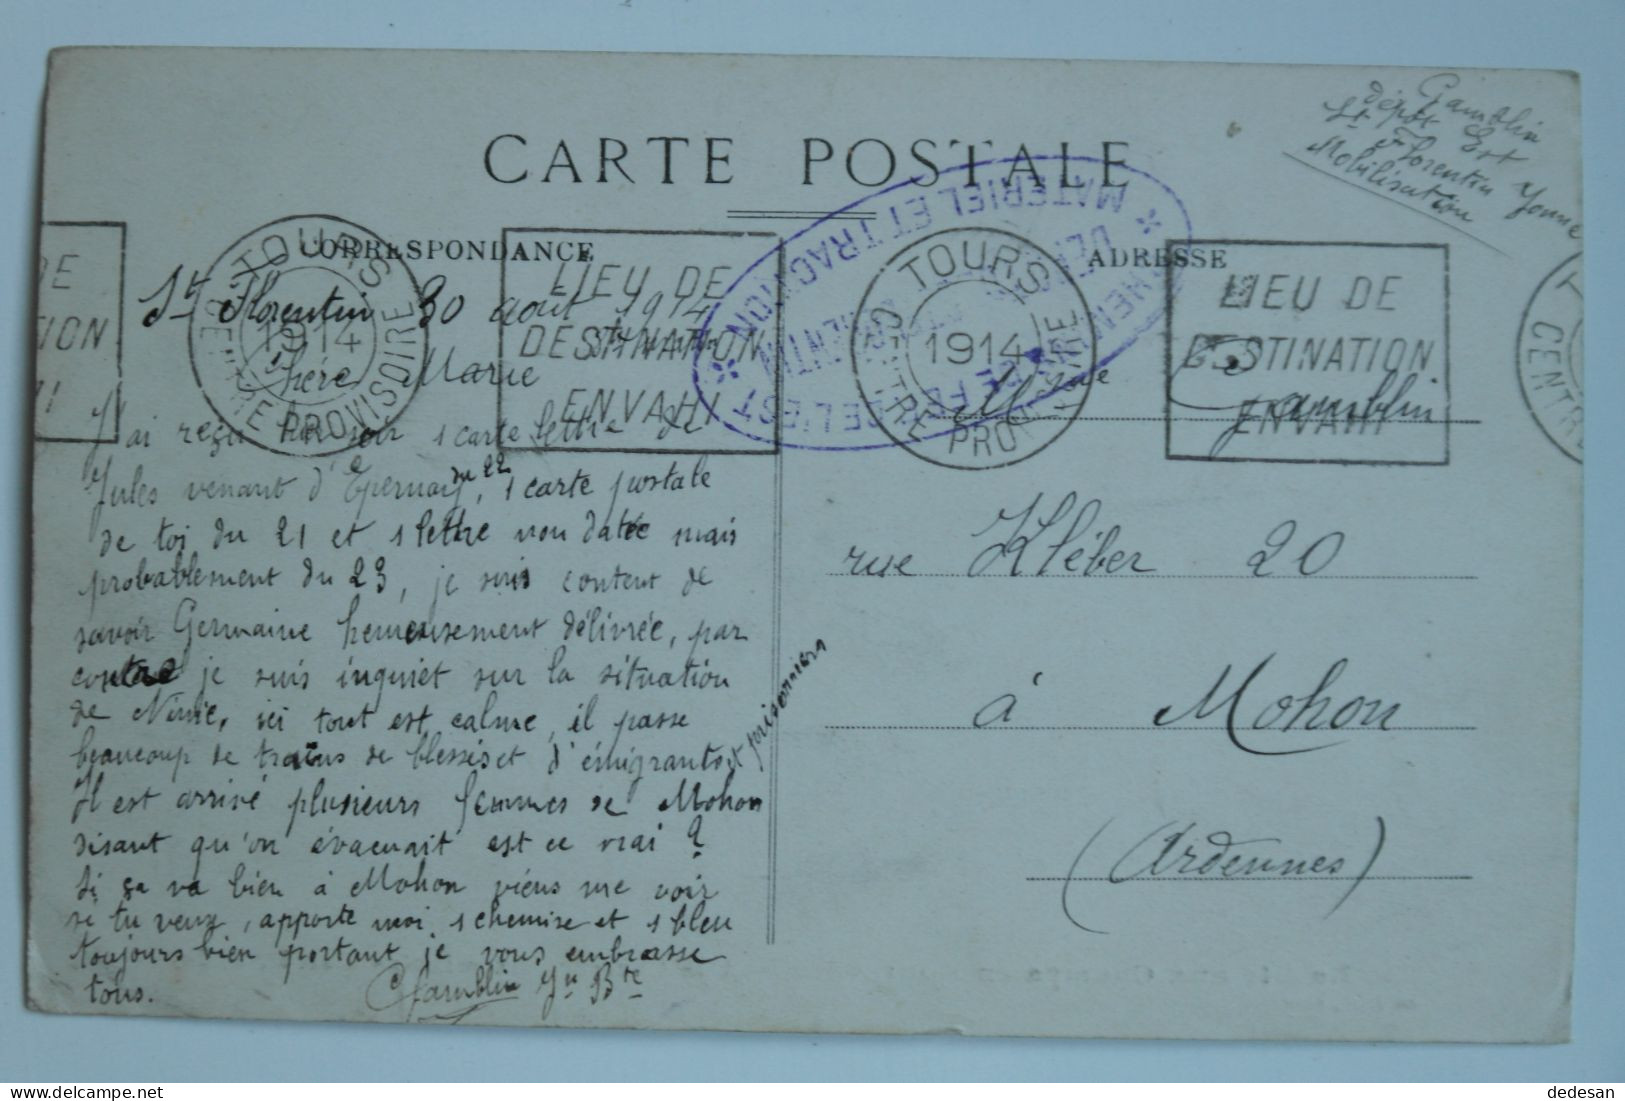 Gamblin
dépôt Est
St Florentin Yonne
Mobilisation
CARTE POSTALE
CORRESPONDANCE
ADRESSE
TOURS
1914
CENTRE PROVISOIRE
LIEU DE
DESTINATION
ENVAHI
TOURS
1914
CENTRE PROVISOIRE
LIEU DE
DESTINATION
ENVAHI
DE
TION
I!
T
CENTRE
MATÉRIEL ET TRACTION
DE L'EST
St Florentin 30 août 1914
Chère Marie
J'ai reçu hier soir 1 carte lettre de
Jules venant d'Epernay du 22, 1 carte postale
de toi du 21 et 1 lettre non datée mais
probablement du 23, je suis content de
savoir Germaine heureusement délivrée, par
contre je suis inquiet sur la situation
de Ninie, ici tout est calme, il passe
beaucoup de trains de blessés et d'émigrants et prisonniers
Il est arrivé plusieurs femmes de Mohon
disant qu'on évacuait est ce vrai ?
Si ça va bien à Mohon viens me voir
si tu veux, apporte moi 1 chemise et 1 bleu
toujours bien portant je vous embrasse
tous. Gamblin Jn Bte
Mme Gamblin
rue Kléber 20
à Mohon
(Ardennes)
dedesan